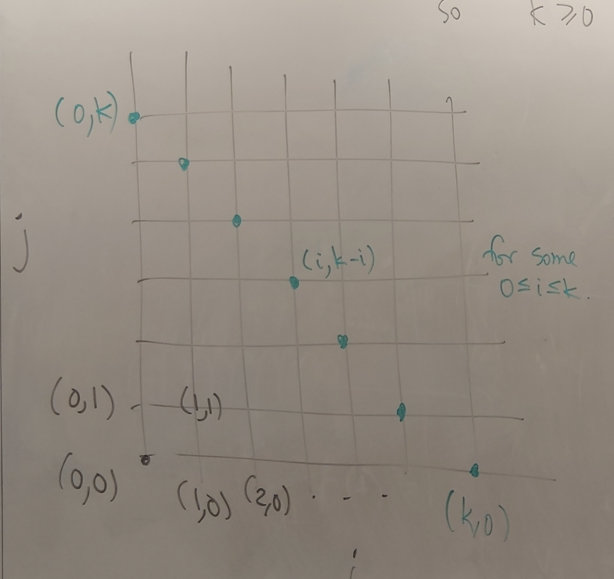 so k ≥ 0
(0,k)
j
(i,k-i)
for some
0≤i≤k.
(0,1) (1,1)
(0,0)
(1,0) (2,0) · - ·
(k,0)
i